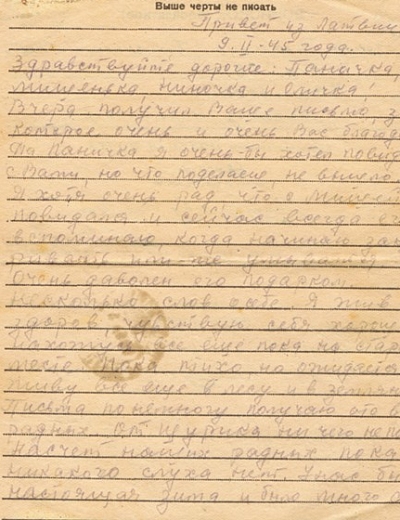 Выше черты не писать
Привет из Латвии
9.II-45 года.
Здравствуйте дорогие: Паничка,
Мишенька, Ниночка и Оличка!
Вчера получил Ваше письмо, з
которое очень и очень Вас благода
Да Паничка я очень-бы хотел повид
с Вами, но что поделаеш, не вышло
Я хотя очень рад, что с Мишей
повидался и сейчас всегда ег
вспоминаю, когда начинаю зак
ривать или же умываться
Очень даволен его подарком.
Несколько слов о себе. Я жив
здоров, чувствую себя хороше
Нахожусь все еще пока на стар
месте. Пока тихо, но ожидается
Живу все еще в лесу и в землян
Письма по немногу получаю ото в
радных. От Шурика ни чего не по
Насчет наших радных пока
никакого слуха нет. У нас бы
настоящая зима и было много с